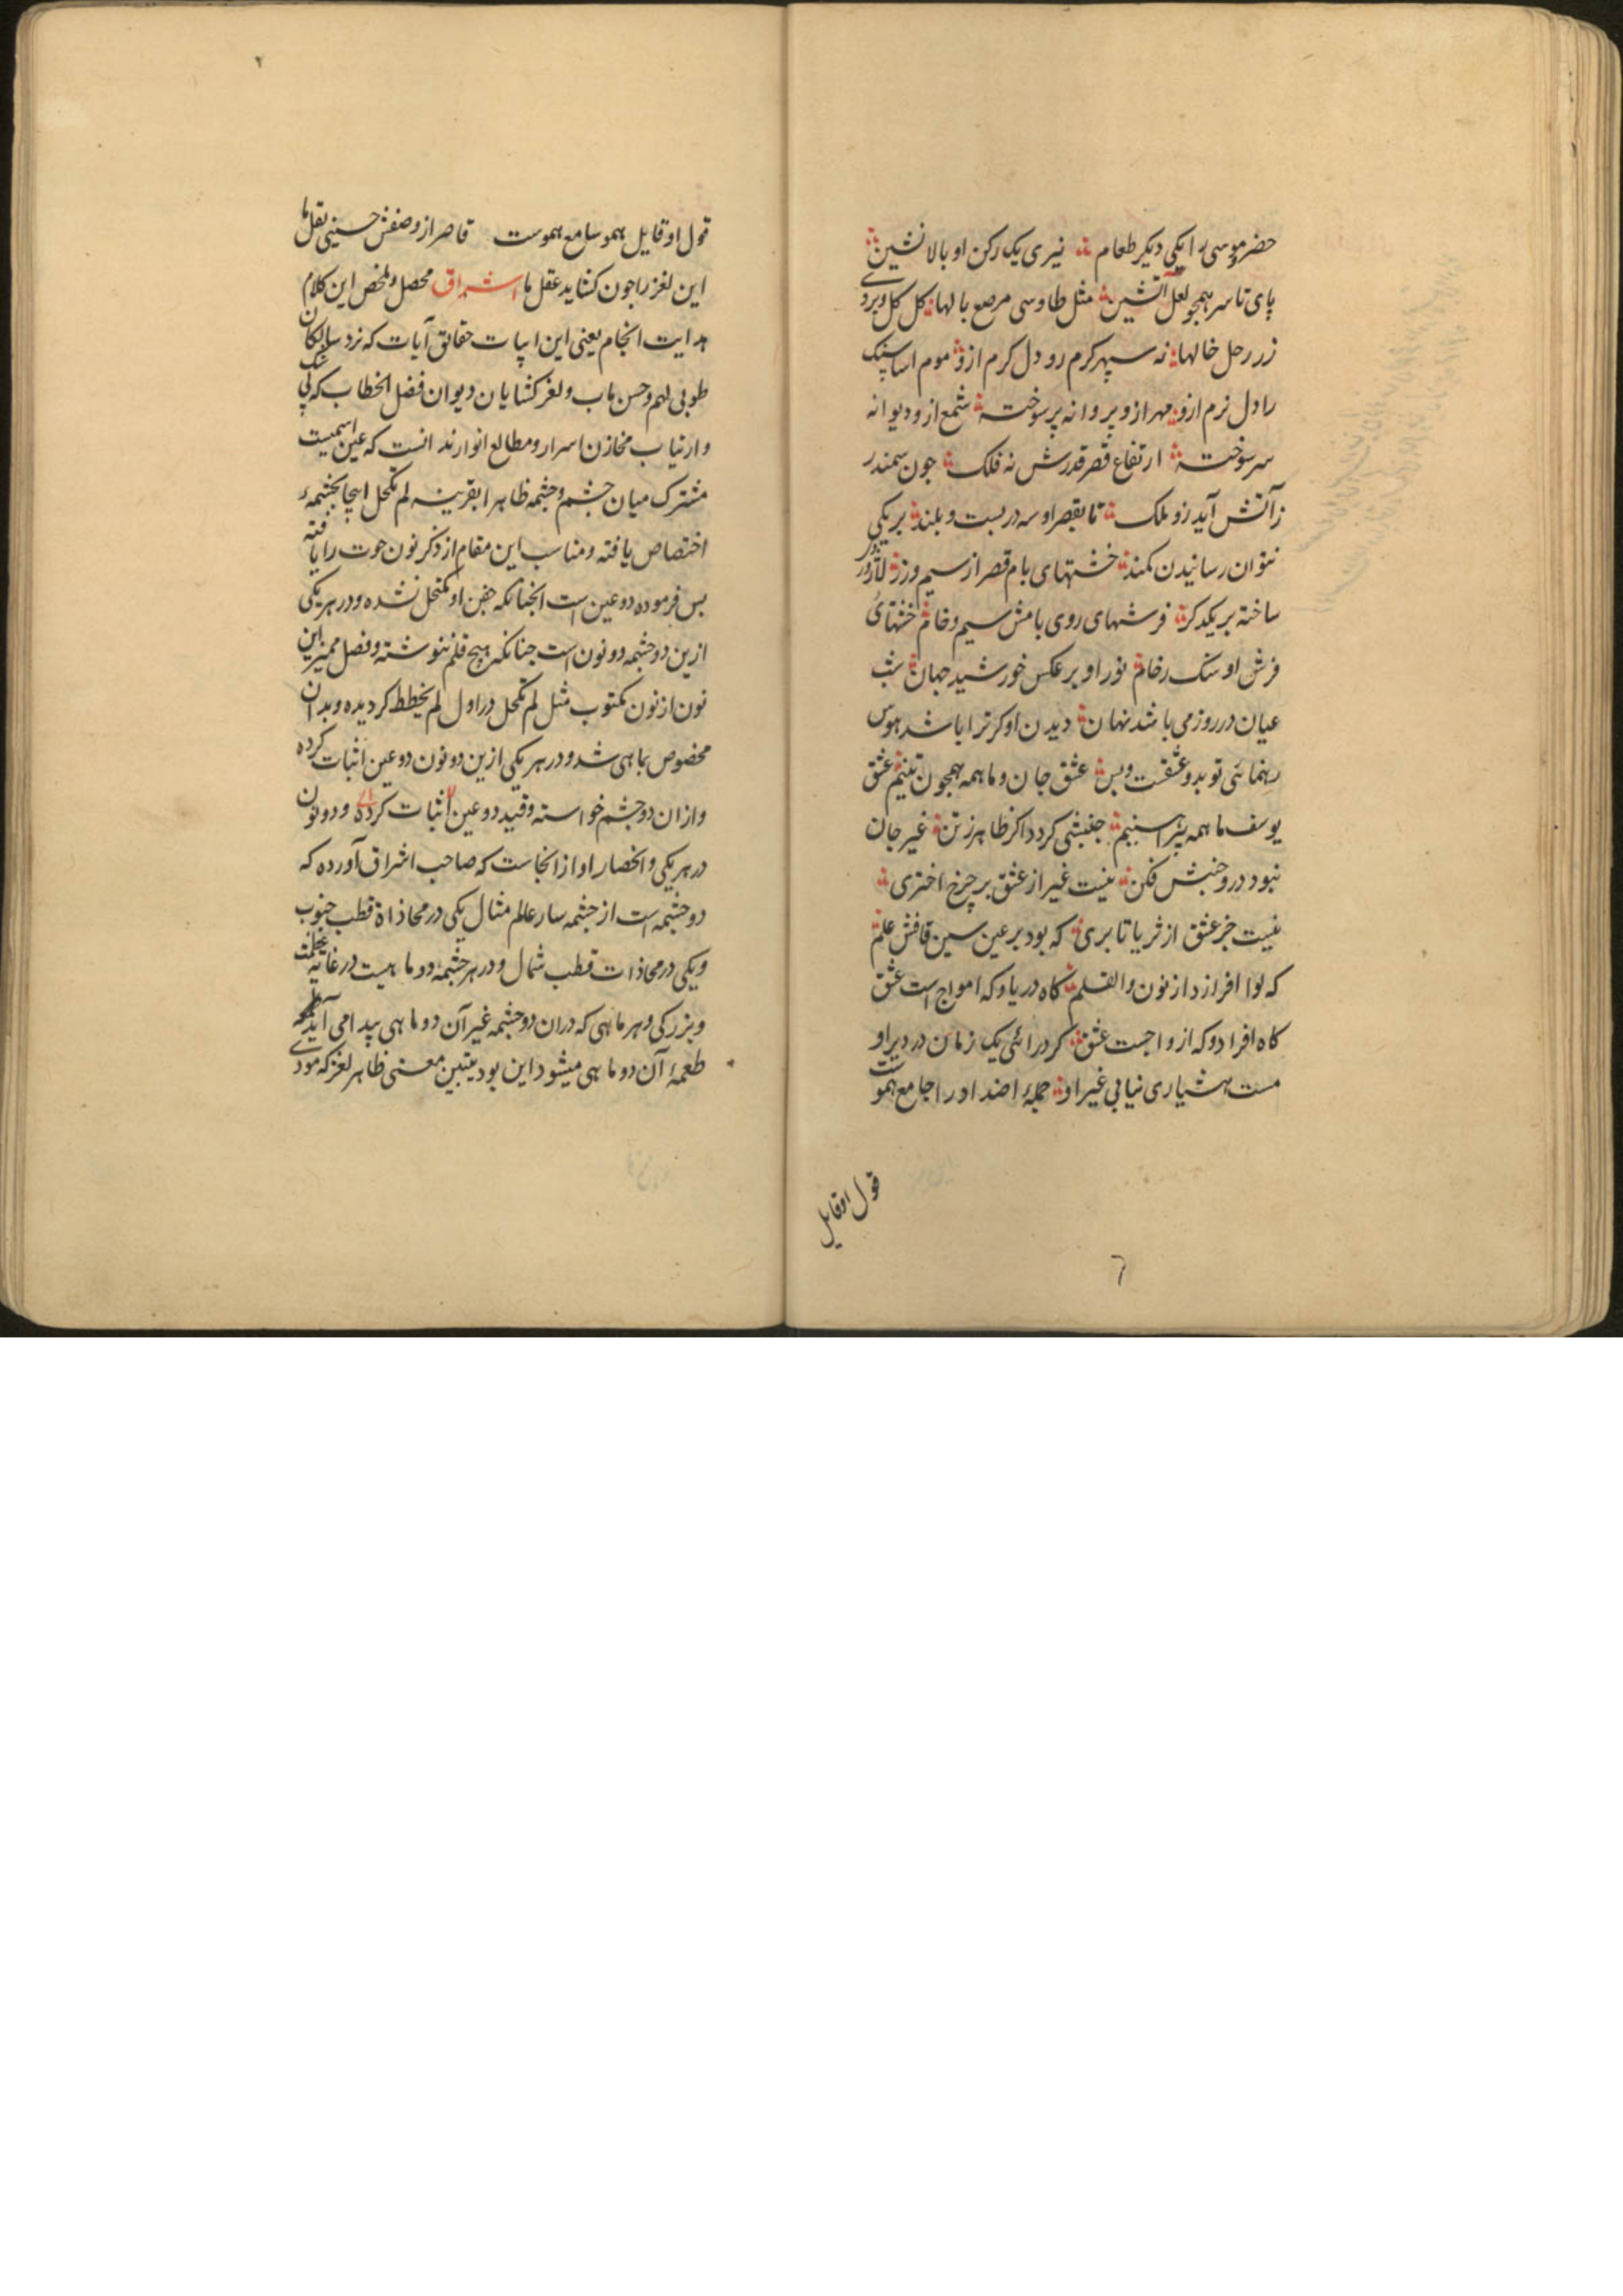 حضر و موسی را یکی دیکر طعام ؞ نیری یک رکن او بالانشین ؞
پای تا سر همچو لعل آتشین ؞ مثل طاوسی مرصع بالها ؞ کل کل و بروی
زر رحل خالها ؞ نه سپهر کرم رو دل کرم ازو ؞ موم اسا سنک
را دل نرم ازو ؞ مهر ازو پروانه پر سوخته ؞ شمع ازو دیوانه
سر سوخته ؞ ارتفاع قصر قدرش نه فلک ؞ جون سمندر
ز آتش آید زو ملک ؞ تا بقصر او سه در بست و بلند ؞ بر یکی
نتوان رسانیدن کمند ؞ خشتهای بام قصر از سیم و زر ؞
ساخته بر یکدکر ؞ فرشهای روی بامش سیم و خام ؞ خشتهای
فرش او سنک رخام ؞ نور او بر عکس خورشید جهان ؞ شب
عیان در روز می باشد نهان ؞ دیدن او کر ترا باشد هوس
رهنمائی تو بدو عشقت و بس ؞ عشق جان و ما همه همچون تنیم ؞ عشق
یوسف ما همه پیراهنیم ؞ جنبشی کردد اکر ظاهر ز تن ؞ غیر جان
نبود درو جنبش فکن ؞ نیست غیر از عشق بر چرخ اختری ؞
نیست جز عشق از ثریا تا بری ؞ که بود بر عین سین قافش علم ؞
که لوا افرازد از نون والقلم ؞ کاه دریا و که امواج است عشق
کاه افراد و که ازواجست عشق ؞ کر درائی یک زمان در دیر او
مست هشیاری نیابی غیر او ؞ جملهٔ اضداد را جامع هموست
قول او قایل
٦
قول او قایل همو سامع هموست قاصر از وصفش حسینی نقل ما
این لغز را جون کشاید عقل ما اشراق محصل و ملخص این کلام
هدایت انجام یعنی این ابیات حقائق آیات که نزد سالکان
طوبی لهم و حسن ماب و لغز کشایان دیوان فصل الخطاب که بی شک
و ارتیاب مخازن اسرار و مطالع انوارند انست که عین اسمیت
مشترک میان جشم و جشمه ظاهرا بقرینه لم تکحل اینجا بجشمهٔ
اختصاص یافته و مناسب این مقام از ذکر نون حوت را یافته
بس فرموده دو عین است انجنانکه جفن او مکتحل نشده و در هر یکی
ازین دو جشمه دو نون است جنانکه هیچ قلم ننوشته و فصل ممیز این
نون از نون مکتوب مثل لم تکحل در اول لم یخطط کردیده و بدان
مخصوص بماهی شد و در هر یکی ازین دو نون دو عین اثبات کرده
و از ان دو جشم خواسته و قید دو عین اثبات کرده و دو نون
در هر یکی و انحصار او از انجاست که صاحب اشراق آورده که
دو جشمه است از جشمه سار عالم مثال یکی در محاذاة قطب جنوب
و یکی در محاذات قطب شمال و در هر جشمهٔ دو ماهیست در غایة عظمت
و بزرکی و هر ماهی که دران دو جشمه غیر آن دو ماهی پیدا می آید
طعمهٔ آن دو ماهی میشود این بود تبیین معنی ظاهر لغز که مودی